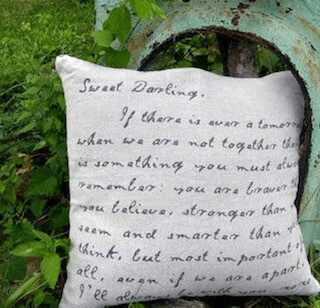 Sweet Darling,
If there is ever a tomorrow
when we are not together
is something you must
remember: you are braver
you believe, stronger than
seem and smarter than
think, but most important
all, even if we are apart
I'll always be with you